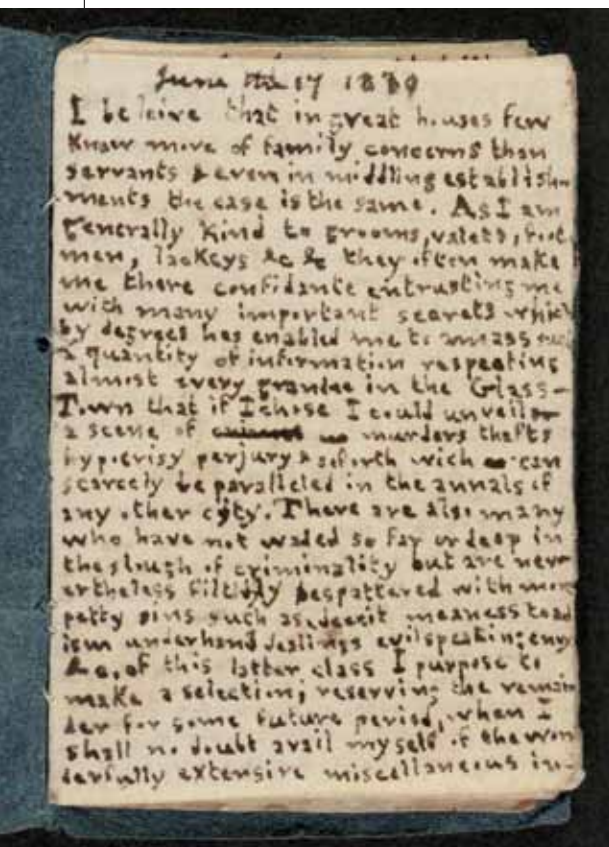 June the 17 1830
I beleive that in great houses few
know more of family concerns than
servants & even in middling establish-
ments the case is the same. As I am
generally kind to grooms, valets, foot
men, lackeys &c &c they often make
me there confidante entrusting me
with many important secrets which
by degrees has enabled me to amass
a quantity of information respecting
almost every grandee in the Glass-
Town that if I chose I could unveil
a scene of murders thefts
hypocrisy perjury & so forth wich can
scarcely be paralleled in the annals of
any other city. There are also many
who have not waded so far or deep in
the slough of criminality but are nev-
ertheless filthily bespattered with more
petty sins such as deceit meaness toad
ism underhand dealings evil speaking envy
&c, of this latter class I purpose to
make a selection; reserving the remain
der for some future period, when I
shall no doubt avail myself of the won
derfully extensive miscellaneous in-